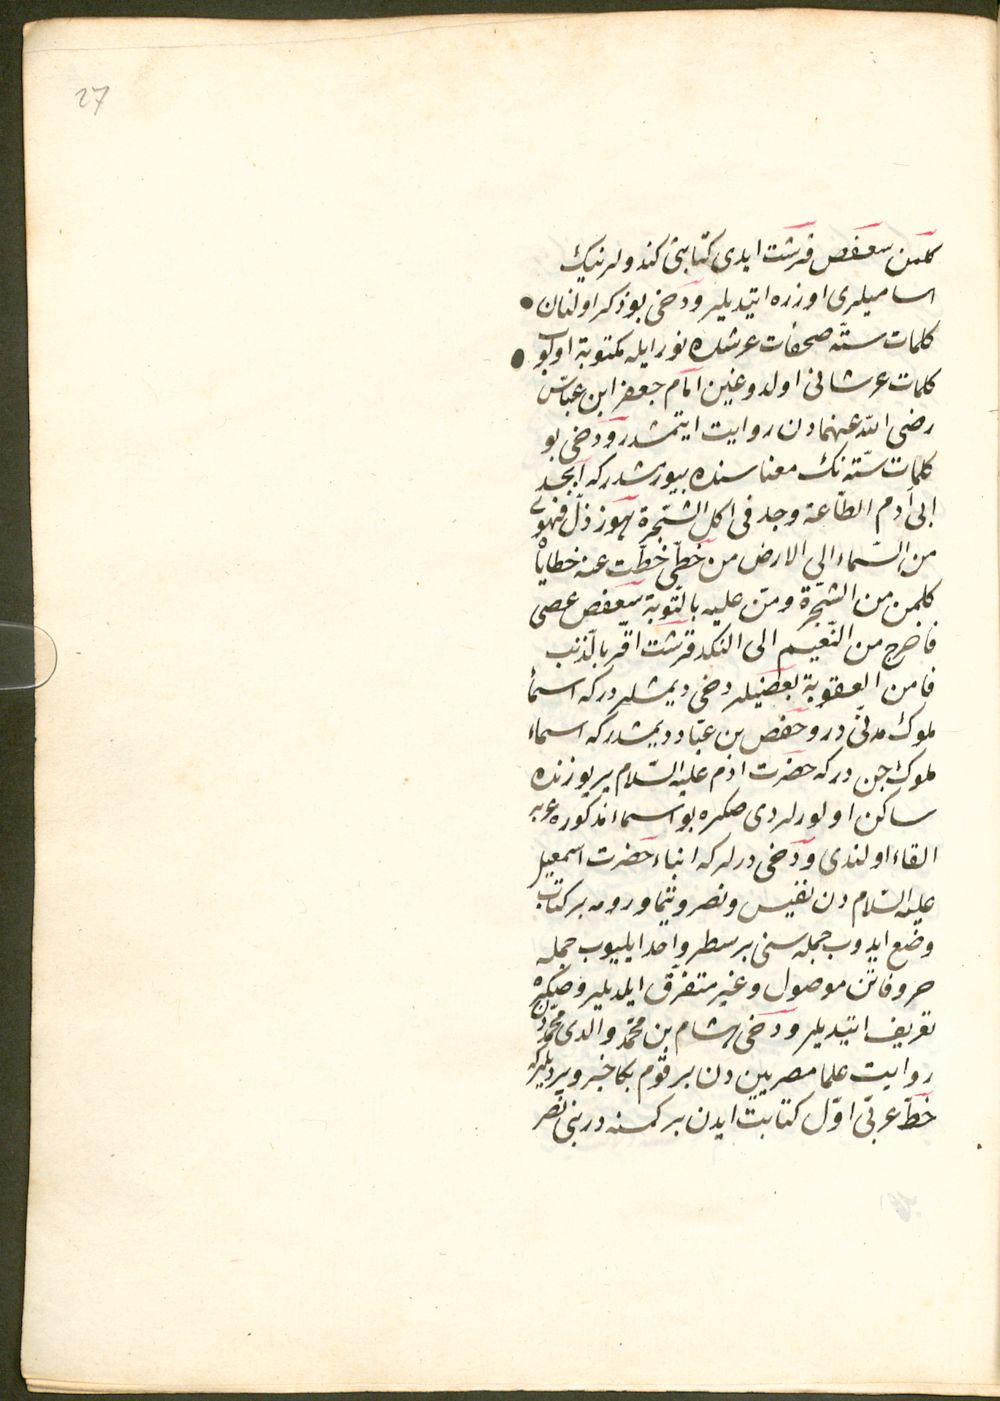 27
كلمن سعفص قرشت ايدى كتابتى كندولرنيك
اساميلرى اوزره ايتديلر ودخى بو ذكر اولنان
كلمات ستّه صحفات عرشده نور ايله مكتوبة اولوب
كلمات عرشانى اولدوغين امام جعفر ابن عبّاس
رضى الله عنهمادن روايت ايتمشدر ودخى بو
كلمات ستّه نك معناسنده بيورمشدركه ابجد
ابى آدم الطّاعة وجد فى اكل الشّجرة هوّز ذلّ فهوى
من السّماء الى الارض من حطّى حطّت عنه خطاياه
كلمن من الشّجرة ومنّ عليه بالتّوبة سعفص عصى
فاخرج من النّعيم الى النكد قرشت اقرّ بالذّنب
فامن العقوبة بعضيلر دخى ديمشلردركه اسماء
ملوك مدنّى در وحفص بن عبّاد ديمشدركه اسماء
ملوك جن دركه حضرت ادم عليه السّلام ير يوزنده
ساكن اولورلردى صكره بو اسماء مذكوره عربه
القاء اولندى ودخى درلركه ابناء حضرت اسمعيل
عليه السّلام دن نفيس ونصر وتيما ورومه بر كتاب
وضع ايدوب جمله سنى بر سطر واحد ايليوب جمله
حروفاتن موصول وغير متفرّق ايلديلر وصكره
تعريف ايتديلر ودخى هشام بن محمّد والدى محمّددن
روايت علما مصريين دن بر قوم بكا خبر ويرديلركه
خطّ عربّى اوّل كتابت ايدن بر كمسنه در بنى نصر